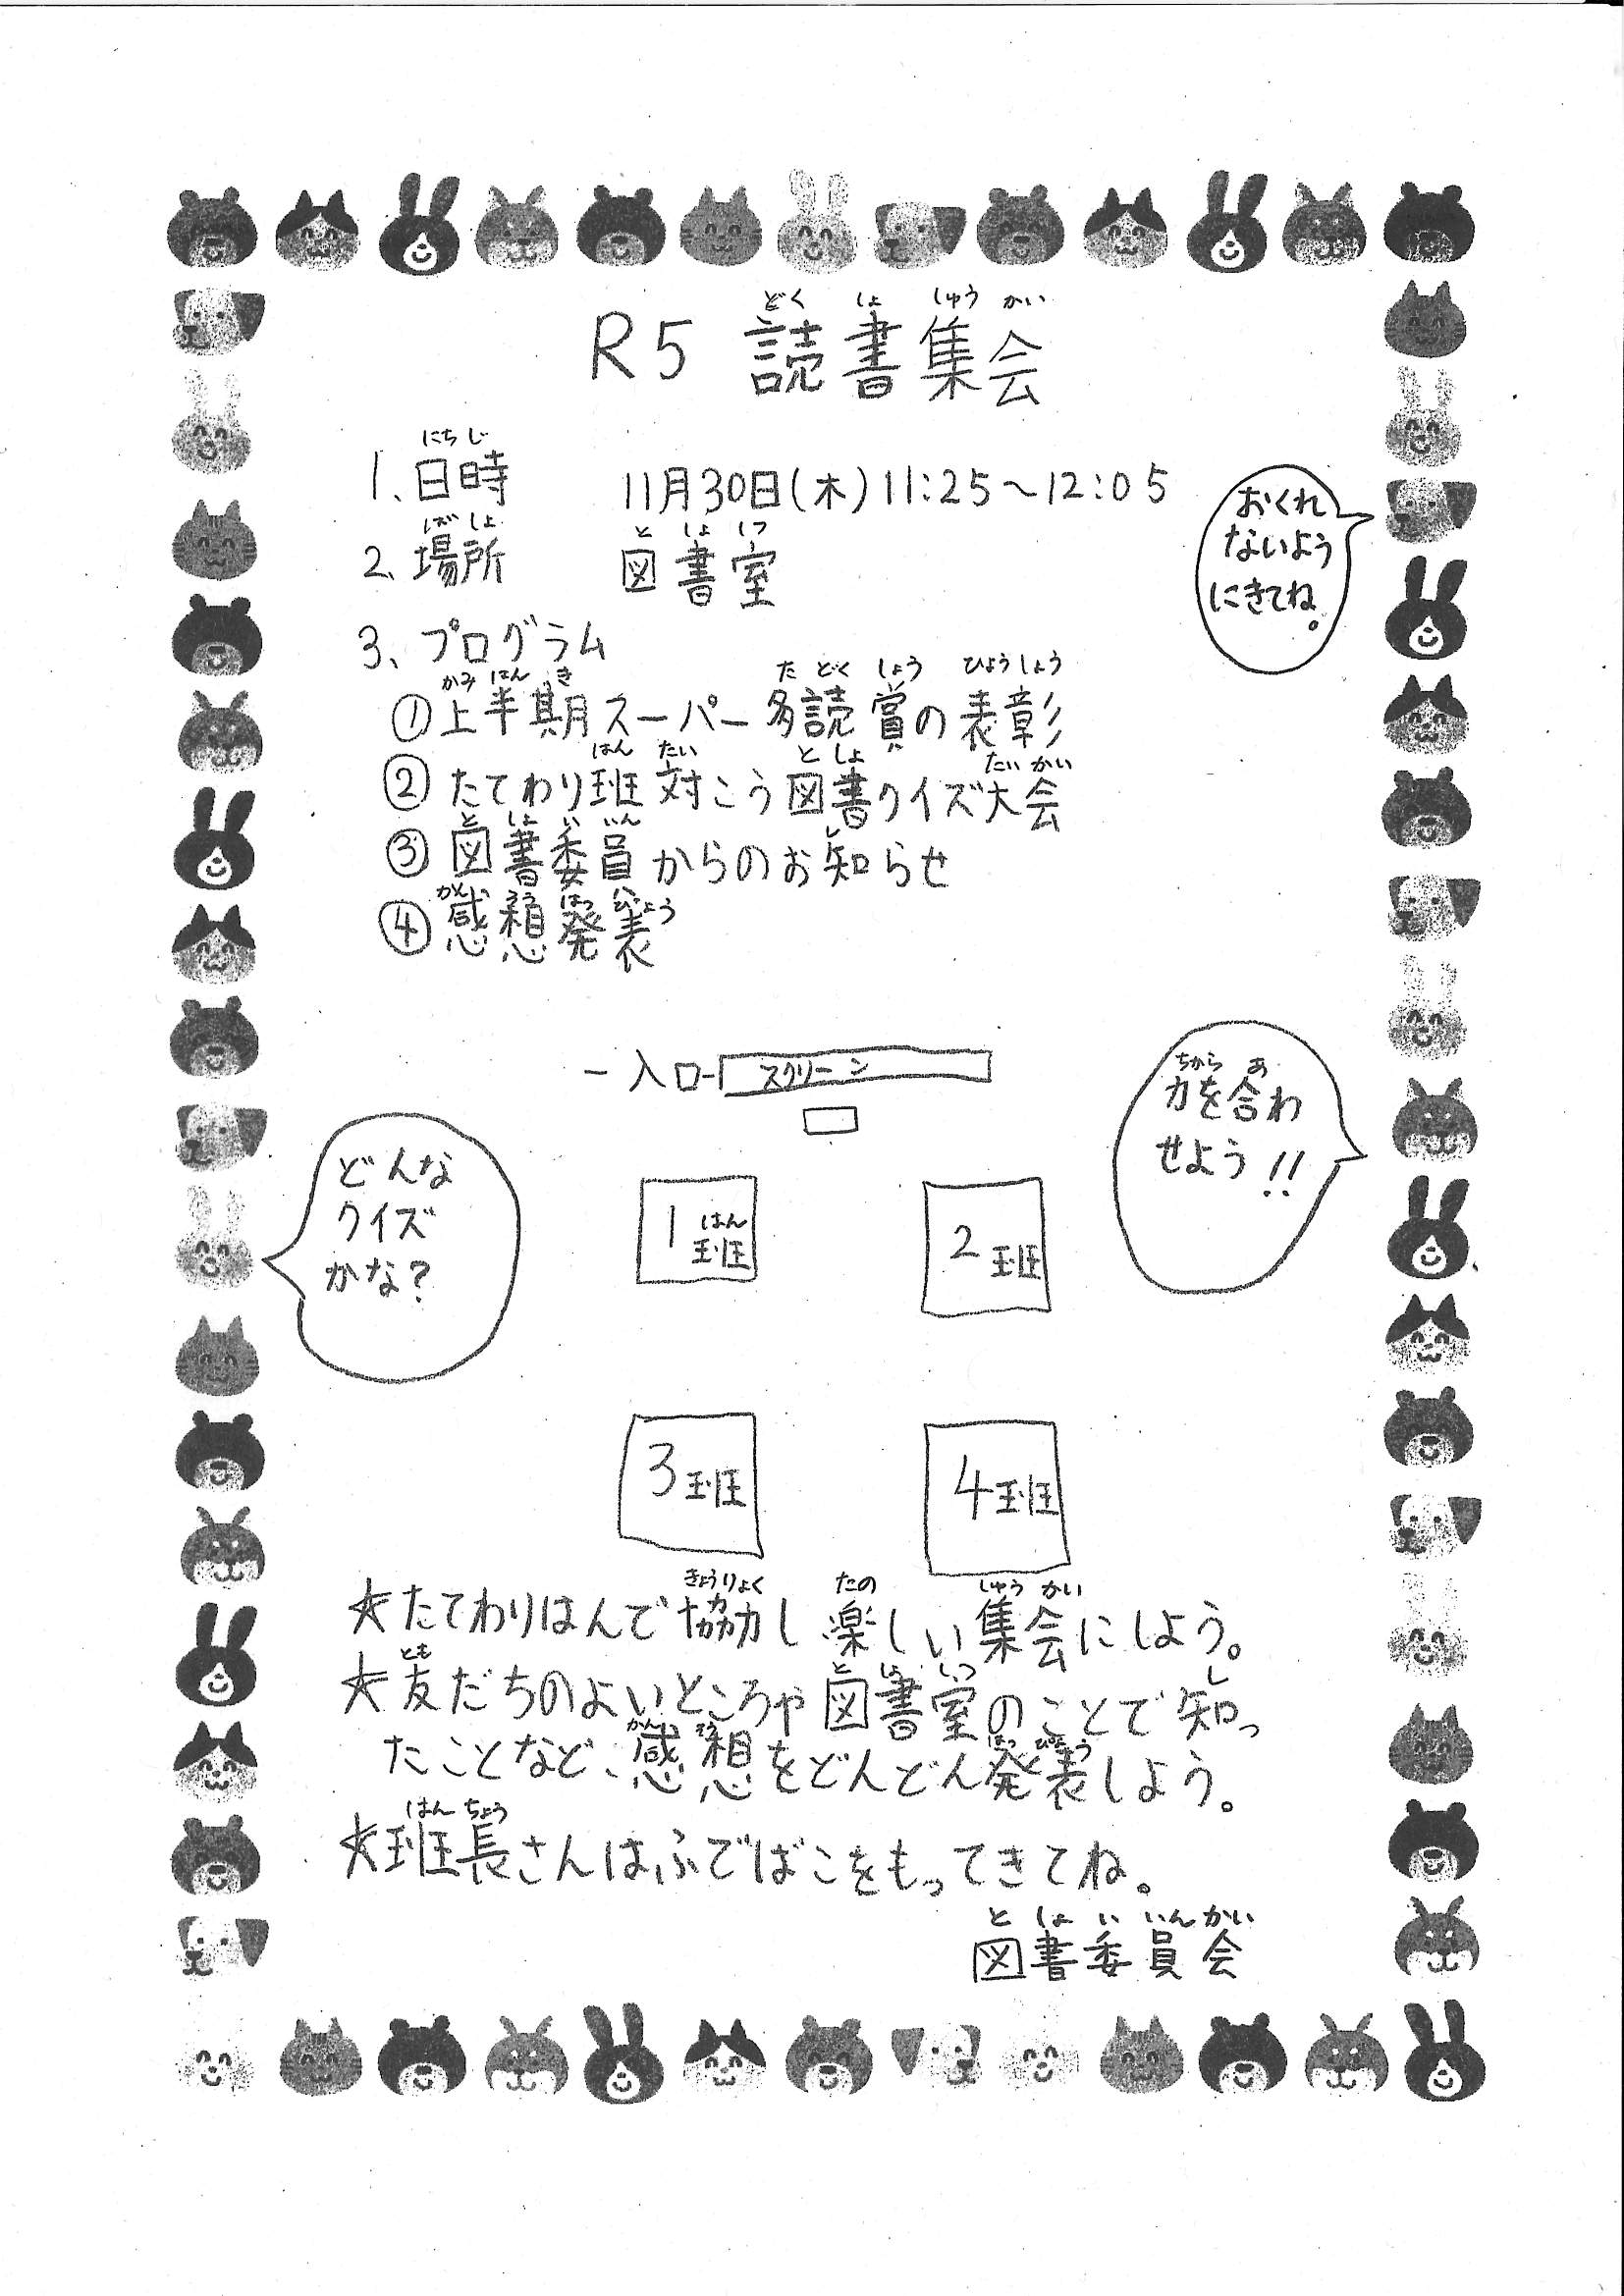 どくしょしゅうかい
R5 読書集会
にちじ
1、日時 11月30日(木)11:25~12:05
ばしょ としょしつ
2、場所 図書室
おくれ
ないよう
にきてね。
3、プログラム
かみはんき たどくしょう ひょうしょう
①上半期スーパー多読賞の表彰
はん たい としょ たいかい
②たてわり班対こう図書クイズ大会
としょいいん し
③図書委員からのお知らせ
かんそうはっぴょう
④感想発表
入口 スクリーン
ちから あ
力を合わ
せよう!!
どんな
クイズ
かな?
はん
1班
2班
3班
4班
きょうりょく たの しゅうかい
★たてわりはんで協力し楽しい集会にしよう。
とも としょしつ し
★友だちのよいところや図書室のことで知っ
かんそう はっぴょう
たことなど、感想をどんどん発表しよう。
はんちょう
★班長さんはふでばこをもってきてね。
としょいいんかい
図書委員会